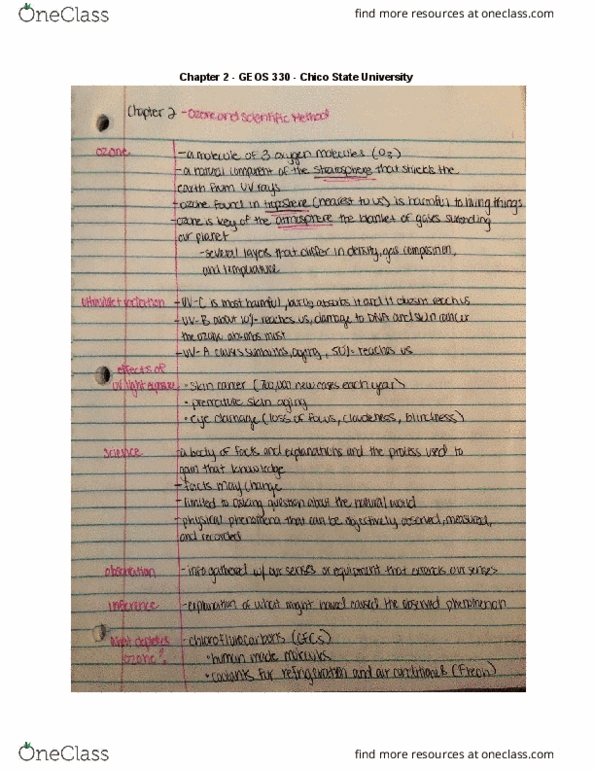 OneClass
find more resources at oneclass.com
Chapter 2 - GEOS 330 - Chico State University
Chapter 2 - Ozone and Scientific Method
ozone
- a molecule of 3 oxygen molecules (O3)
- a natural component of the that shields the
earth from UV rays
- ozone found in (nearest to us) is harmful to living things
- ozone is key of the atmosphere the blanket of gases
our planet
- several layers that differ in density, gas composition,
and temperature
ultraviolet radiation
- UV-C is most harmful, but absorbs it and it doesnt reach us
- UV-B about 10% reaches us, damage to DNA and skin cancer
the ozone absorbs most
- UV-A causes sunburns, aging, 50% reaches us
effects of
UV light exposure
• skin cancer ( new cases each year)
• premature skin aging
• eye damage (loss of focus, blindness)
science
- a body of facts and explanations and the process used to
gain that knowledge
- facts may change
- limited to asking question about the natural world
- physical phenomena that can be objectively observed, measured,
and recorded
observation
- info gathered w/ our senses or equipment that extends our senses
inference
- explanation of what might have caused the observed phenomenon
What depletes
ozone?
- (CFCs)
• human made molecules
• coolants for refrigeration and air (Freon)
OneClass
find more resources at oneclass.com